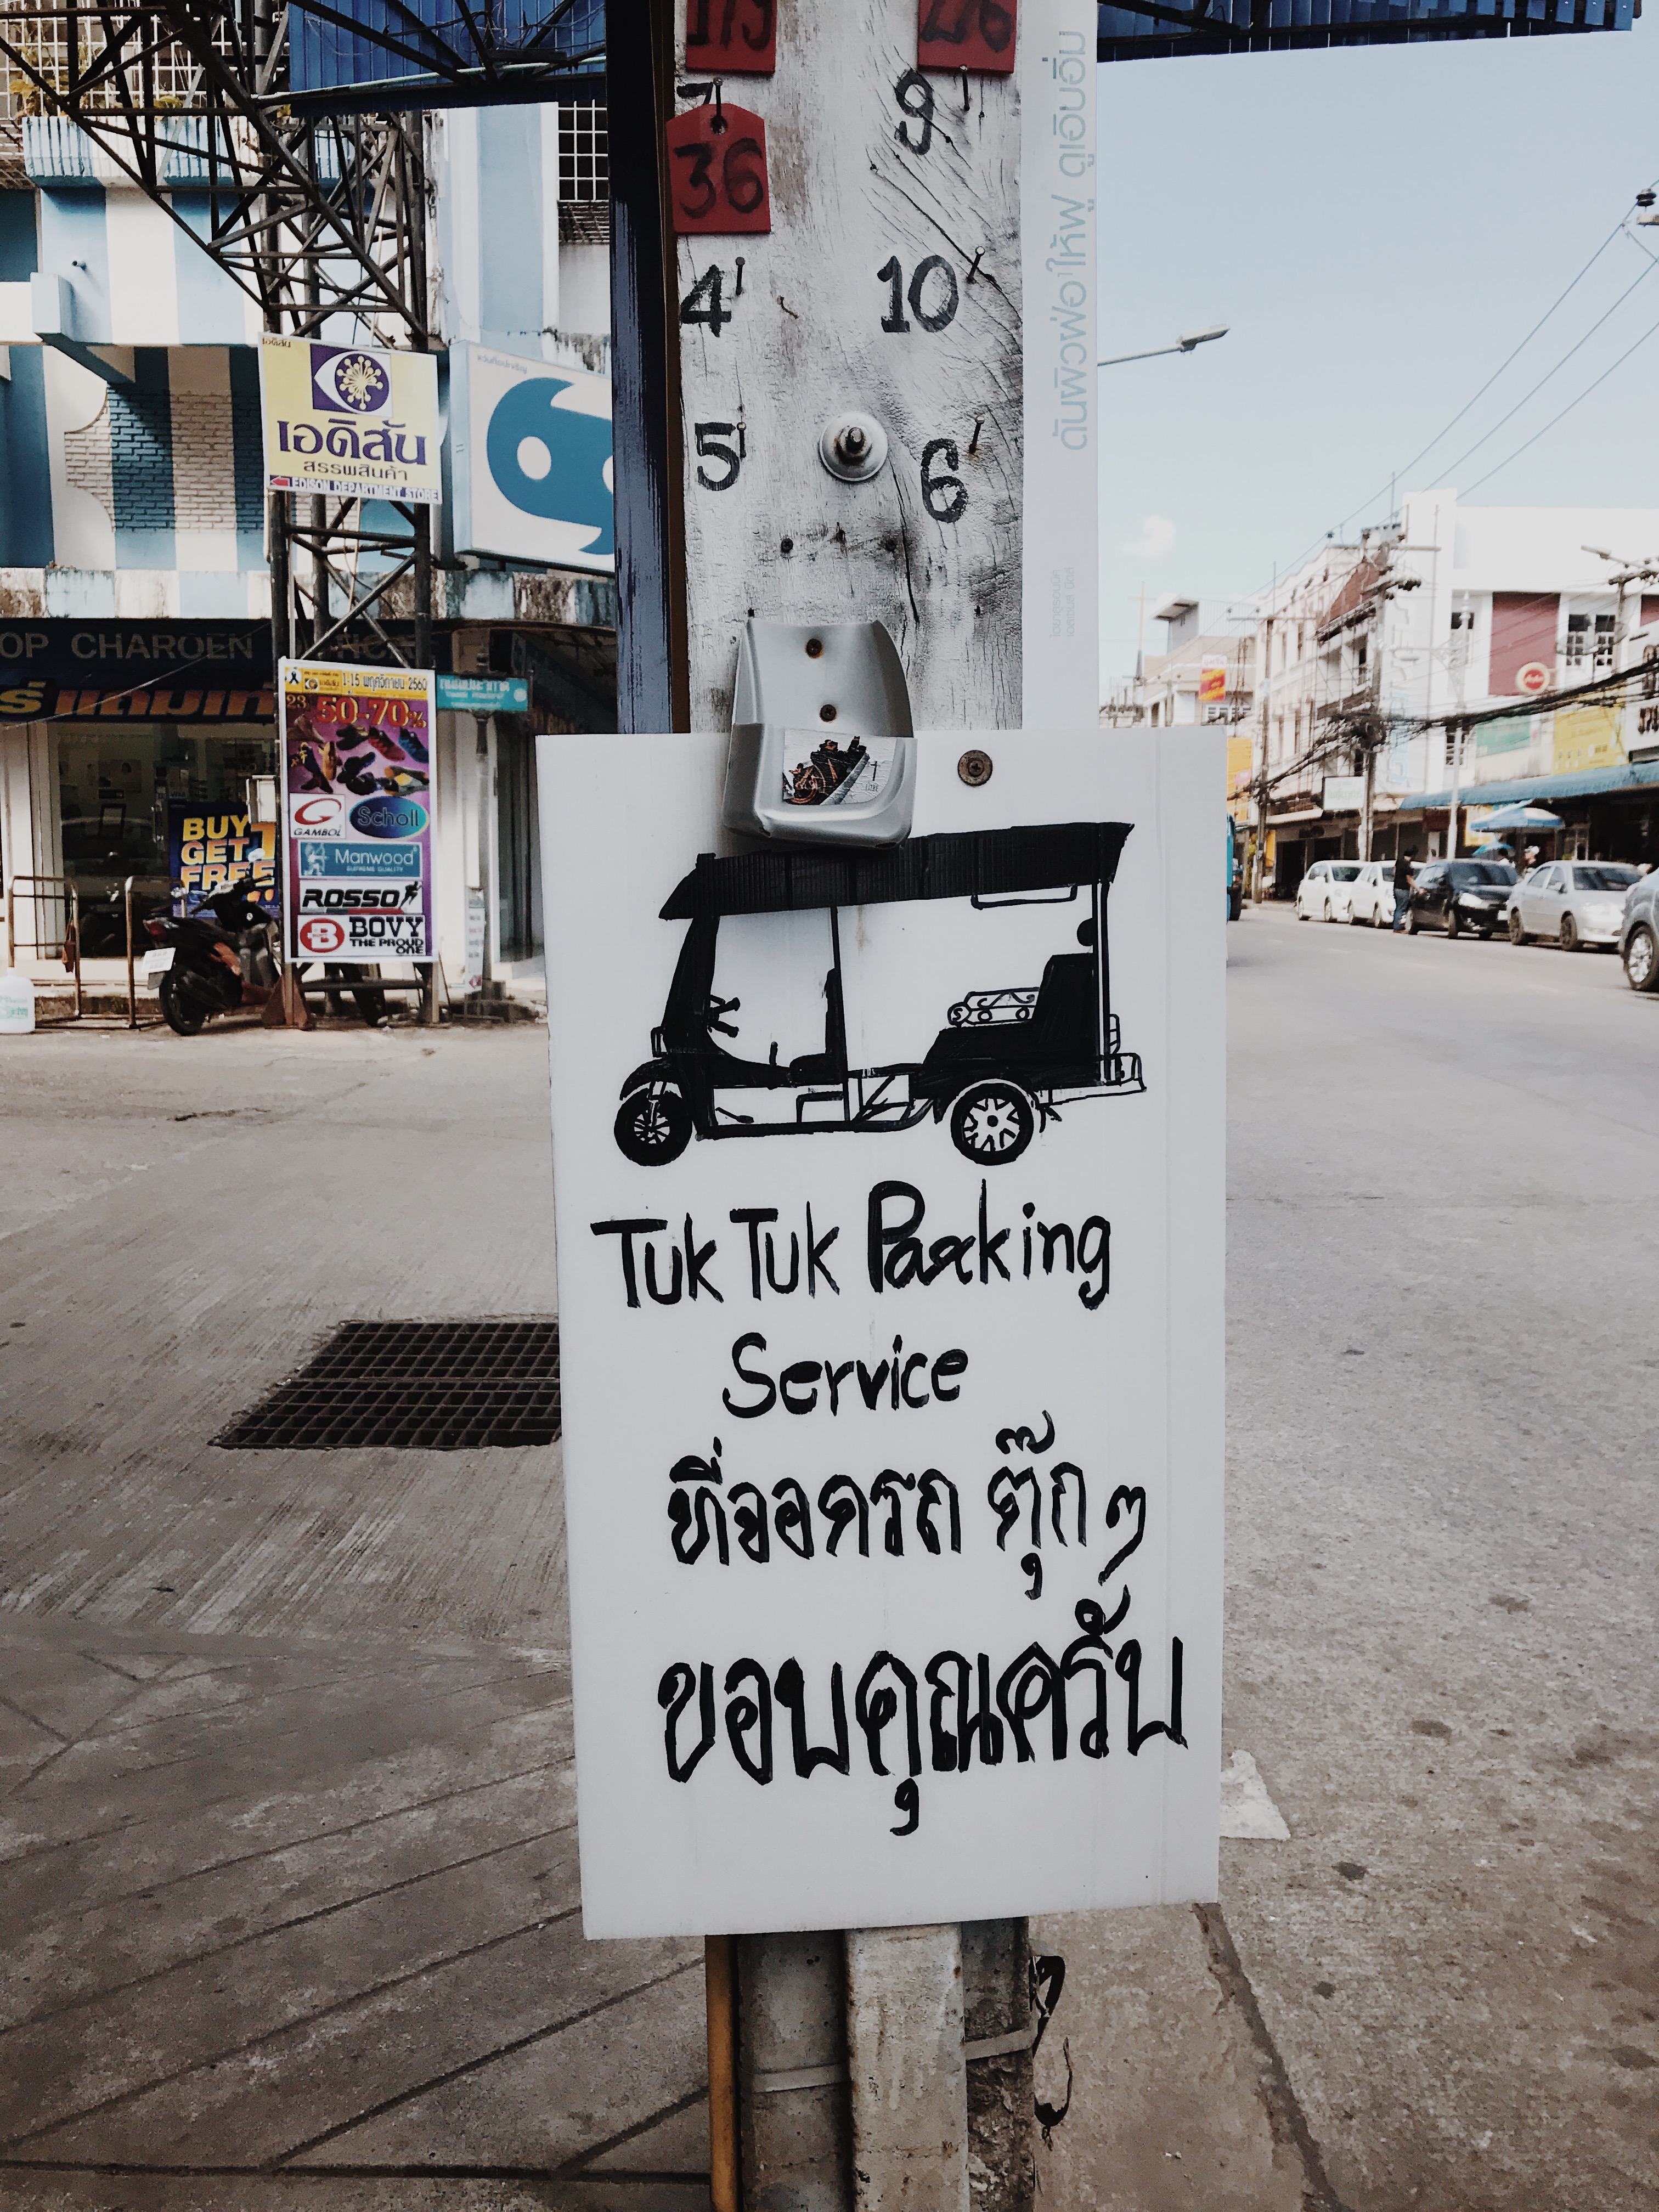 36
9
4
10
5
6
ฉันพิวพ่อ
เอดิสัน
เอดิสัน
สรรพสินค้า
EDISON DEPARTMENT STORE
OP CHAROEN
1-15 พฤศจิกายน 2560
50-70%
GAMBOL
Scholl
Manwood
SUPREME QUALITY
ROSSO
B BOVY
THE PROUD
ONE
BUY 1
GET 1
FREE
Tuk Tuk Parking
Service
ที่จอดรถ ตุ๊กๆ
ขอบคุณครับ